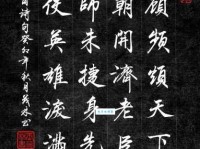 顧頻煩天下
朝開濟老臣
師未捷身先
使英雄淚滿
詩句癸卯年秋月
書